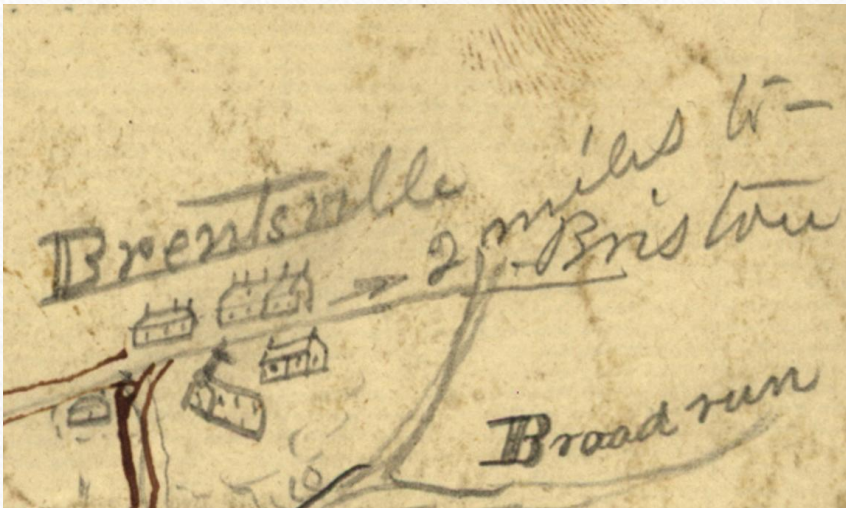 Brentsville
2 miles to
Bristow
Broad run